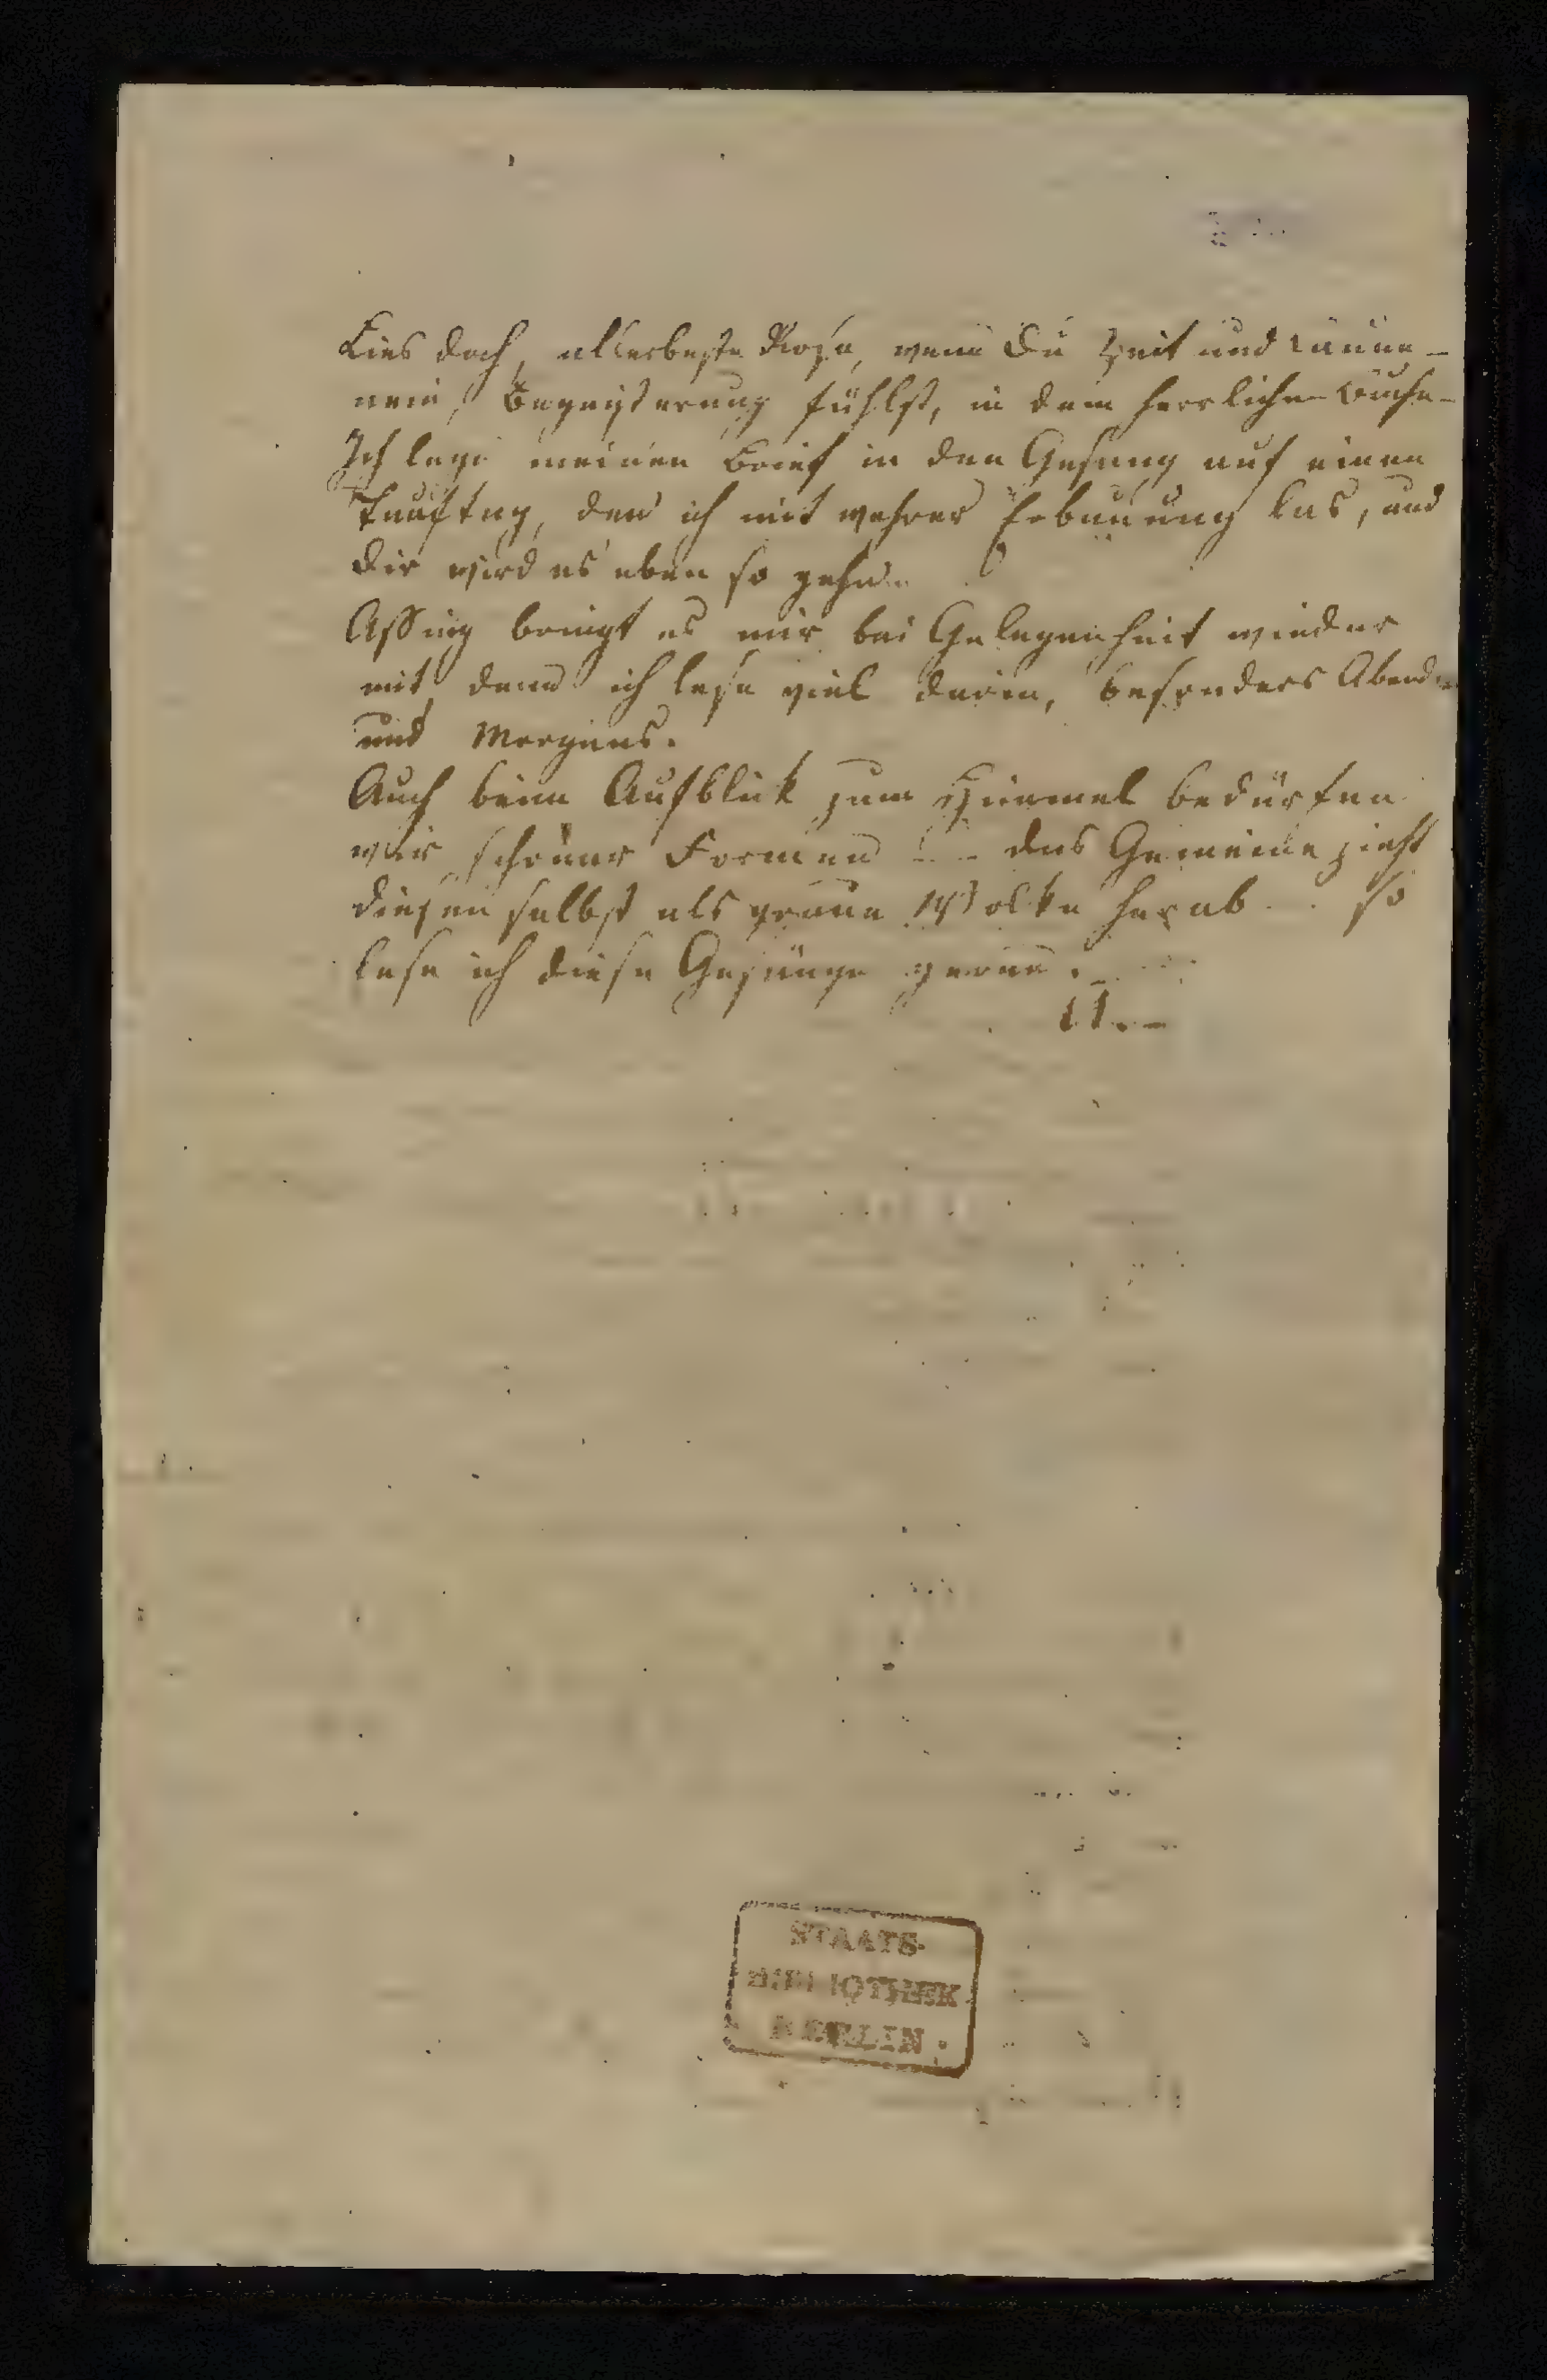 Lies doch, allerbeste Rosa, wenn Du Zeit und Laune –
nein, Begeisterung fühlst, in dem herrlichen Buche –
Ich lege meinen Brief in den Gesang auf einen
Tauftag, den ich mit wahrer Erbauung las, und
Dir wird es eben so gehen
Assing bringt es mir bei Gelegenheit wieder
mit denn ich lese viel darin, besonders Abends
und Morgens.
Auch beim Aufblick zum Himmel bedürfen
wir schöner Formen – das Gemeine zieht
diesen selbst als graue Wolke herab . . so
lese ich diese Gesänge gerne.
STAATS-
BIBLIOTHEK
BERLIN